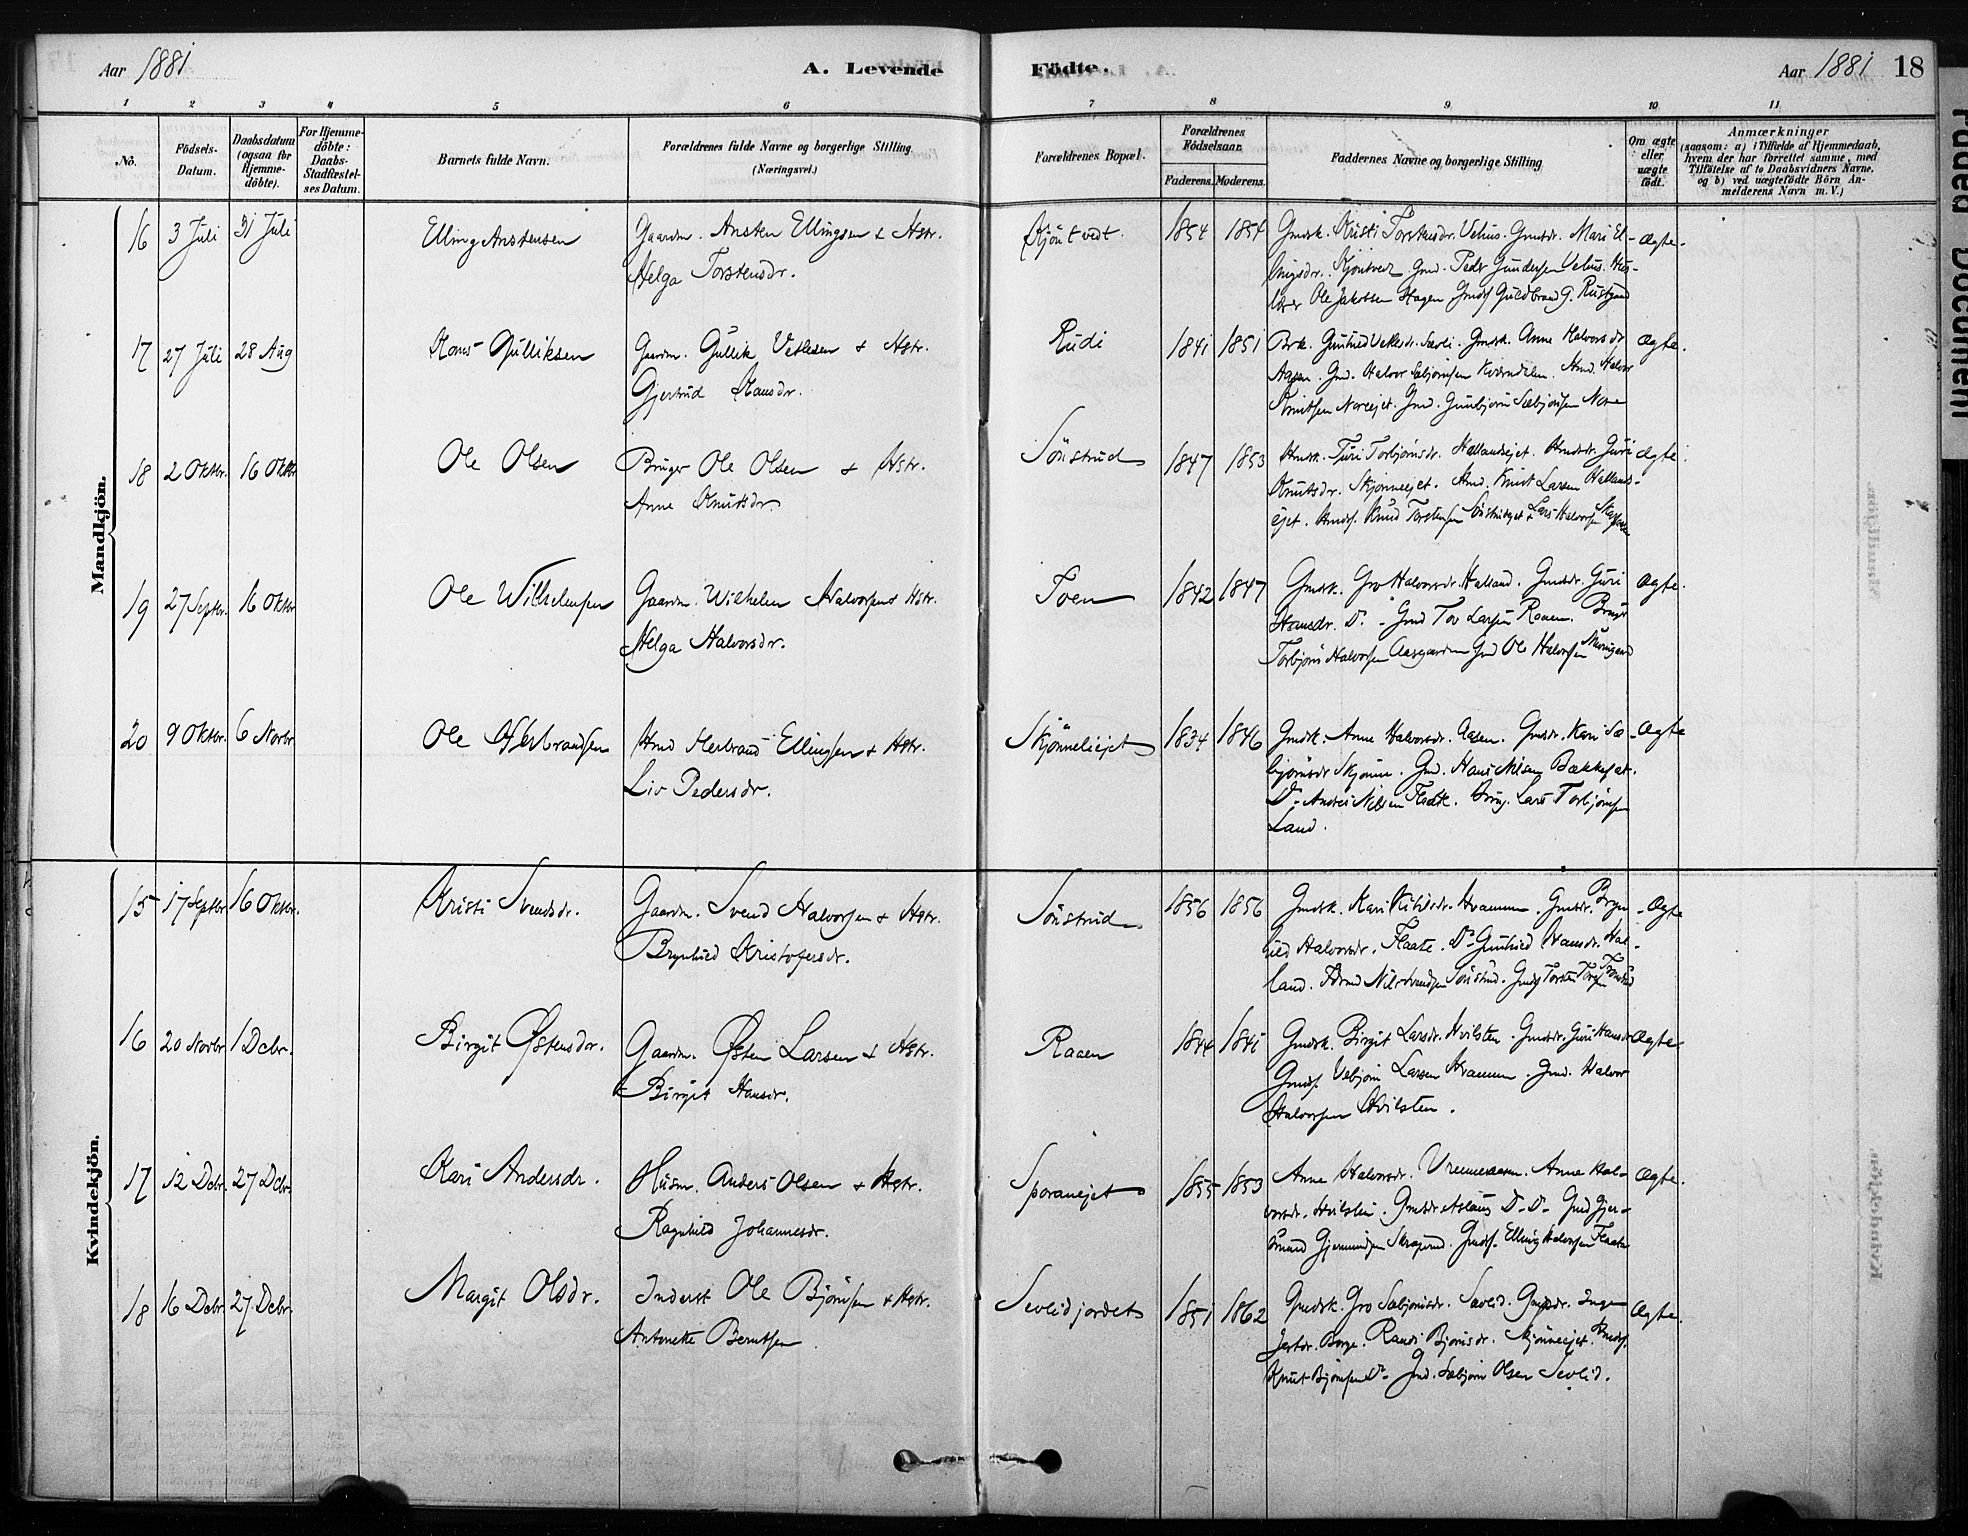 Aar 1881 A. Levende Födte. Aar 1881 18
1 2 3 4 5 6 7 8 9 10 11
No.
Födsels-
Datum.
Daabsdatum
(ogsaa for
Hjemme-
döbte).
For Hjemme-
döbte:
Daabs-
Stadfæstel-
ses Datum.
Barnets fulde Navn.
Forældrenes fulde Navne og borgerlige Stilling
(Næringsvei.)
Forældrenes Bopæl.
Forældrenes
Födselsaar.
Faderens. Moderens.
Faddernes Navne og borgerlige Stilling
Om ægte
eller
uægte
födt.
Anmærkninger
(saasom: a) i Tilfælde af Hjemmedaab,
hvem der har forrettet samme, med
Tilföielse af to Daabsvidners Navne,
og b) ved uægtefödte Börn An-
melderens Navn m.V.)
Mandkjön.
16 3 Juli 31 Juli Elling Anstensen Gaardm. Ansten Ellingsen + Hstr.
Helga Torstensdr.
Kjöntvedt. 1854 1854 Gmdsk. Kristi Torstensdr. Velius. Gmdsdr. Mari El- Ægte.
lingsdr. Kjöntvedt Gmd. Peder Gundersen Velius. Hus-
Ole Jakobsen Hagen Gmds Guldbrand G. Rustgaard
17 27 Juli 28 Aug Hans Gulliksen Gaardm. Gullik Vetlesen + Hstr.
Gjertrud Hansdr.
Rudi 1841 1851 Brk. Gunhild Vetlesdr. Sævli. Gmdsk. Anne Halvorsdr Ægte.
Aasen. Gmd. Halvor Sæbjörnsen Kværndalen. Hmd. Halvor
Knutsen Noreejet. Gmd. Gunbjörn Sæbjörnsen Nore
18 2 Oktbr. 16 Oktbr Ole Olsen Bruger Ole Olsen + Hstr.
Anne Knutsdr.
Sönstrud 1847 1853 Hmdsk. Turi Torbjörnsdr. Hallandsejet. Hmdsdr. Guri Ægte.
Knutsdr. Skjönneejet. Hmd. Knut Larsen Hallands-
ejet. Hmds. Knud Torstensen Sönstrudejet + Lars Halvorsen
19 27 Septbr. 16 Oktbr Ole Wilhelmsen Gaardm. Wilhelm Halvorsen + Hstr.
Helga Halvorsdr.
Toen 1842 1847 Gmdsk. Gro Halvorsdr. Halland. Gmdsdr. Guri Ægte.
Hansdr. Do. - Gmd Tov Larsen Raaen. Bruger
Torbjörn Halvorsen Aasgaarden Gmd Ole Halvorsen
20 9 Oktbr. 6 Novbr Ole Herbrandsen Hmd Herbrand Ellingsen + Hstr.
Liv Pedersdr.
Skjönneliejet 1834 1846 Gmdsk. Anne Halvorsdr. Aasen. Gmdsdr. Kari Sæ- Ægte
björnsdr Skjönne. Gmd. Hans Nilsen Bækkejet.
Do. Anders Nilsen Flaate. Brug. Lars Torbjörnsen
Land.
Kvindekjön.
15 17 Septbr. 16 Oktbr. Kristi Svendsdr. Gaardm. Svend Halvorsen + Hstr.
Brynhild Kristofersdr.
Sönstrud 1856 1856 Gmdsk. Kari Kittilsdr. Hvammen. Gmdsdr. Bryn- Ægte
hild Halvorsdr. Flaate. Do Gunhild Hansdr. Hal-
land. Nils Svendsen Sönstrud. Gmds Torsten
16 20 Novbr 1 Dcbr. Birgit Østensdr. Gaardm. Østen Larsen + Hstr.
Birgit Hansdr.
Raaen 1844 1841 Gmdsk. Birgit Larsdr. Hvilsten. Gmdsdr. Guri Hansdr Ægte
Gmds. Vebjörn Larsen Hvammen. Gmd. Halvor
Halvorsen Hvilsten.
17 12 Dcbr. 27 Dcbr. Kari Andersdr. Husm. Anders Olsen + Hstr.
Ragnhild Johannesdr.
Sporanejet 1855 1853 Anne Halvorsdr. Vrenneaasen. Anne Hal- Ægte.
vorsdr. Hvilsten. Gmdsdr Aslaug Do. Do. Gmd Gjer-
mund Gjermundsen Skrapnud. Gmds. Elling Halvorsen Flaate
18 16 Dcbr. 27 Dcbr. Margit Olsdr. Inderst Ole Björnsen + Hstr.
Antonette Berntsen
Sevlidjordet 1851 1862 Gmdsk. Gro Sæbjörnsdr. Sævlid. Gmdsdr. Inge- Ægte.
Borge. Randi Björnsdr. Skjönneejet. Hmds.
Knut Björnsen Do. Gmd. Sæbjörn Olsen Sevlid.